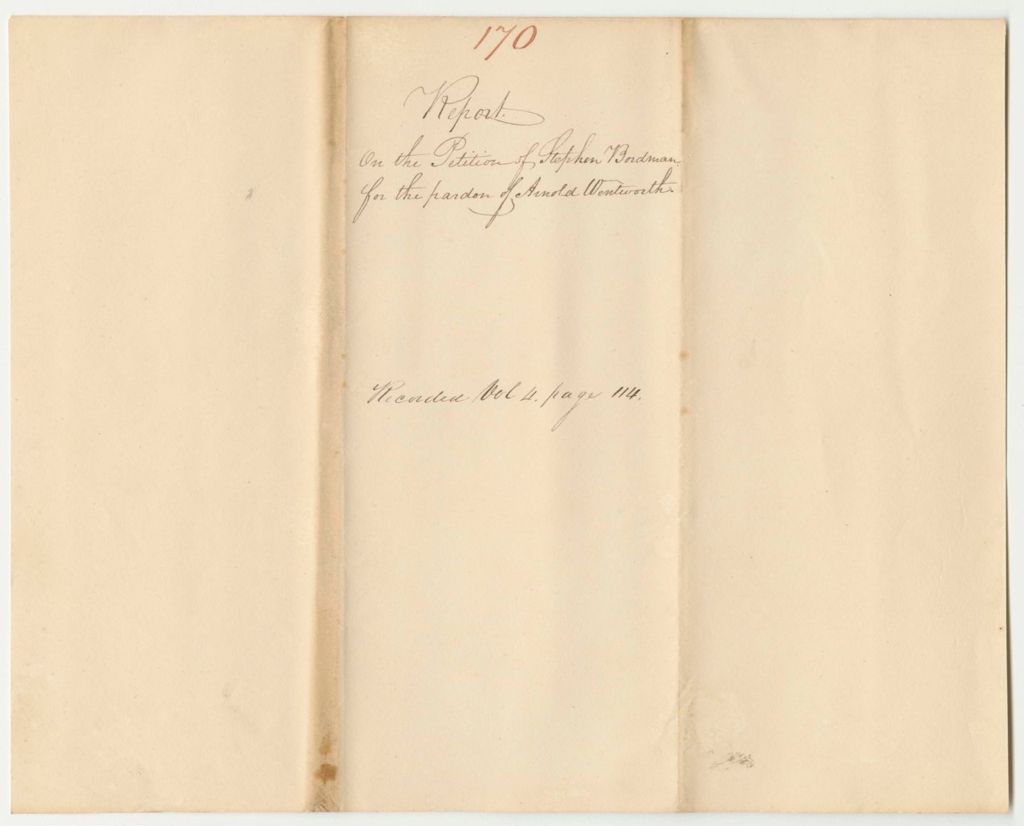 170
Report.
On the Petition of Stephen Bordman
for the pardon of Arnold Wentworth.
Recorded Vol 4. page 114.